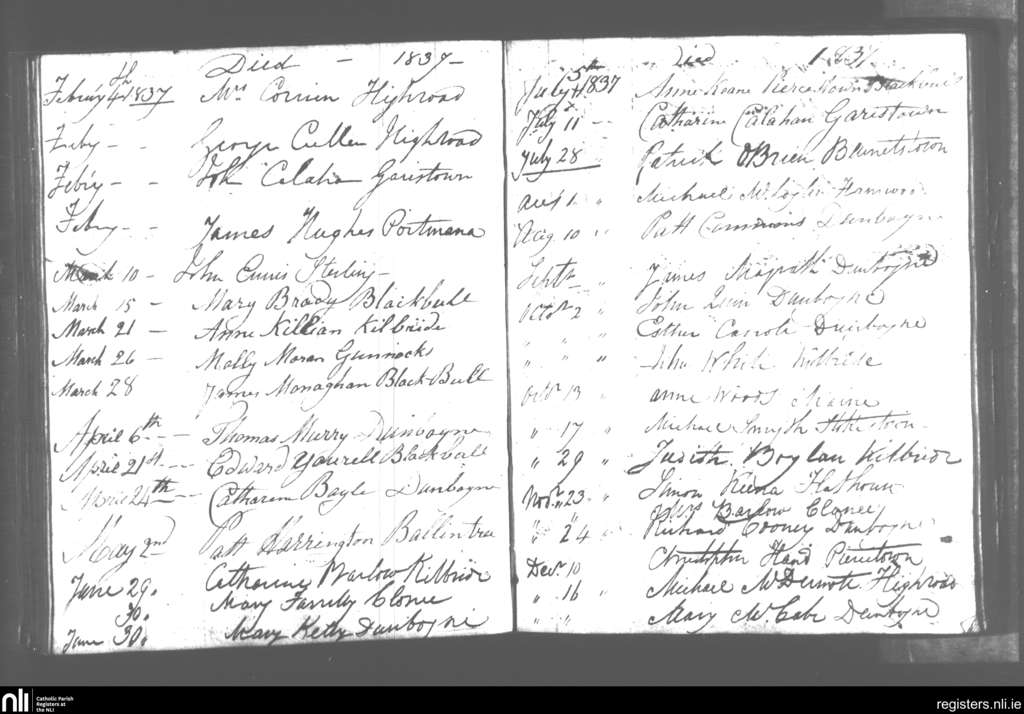 Died - 1837
Febry 4th 1837 Mrs Highroad
Feby - - George Cullen Highroad
Febry - - Joh Calahan Garistown
Feby - - James Hughes Portmana
March 10 - John Sterling
March 15 - Mary Brady Blackbull
March 21 - Anne Killian Kilbride
March 26 - Molly Moran Gunnocks
March 28 James Monaghan Black Bull
April 6th - - Thomas Murry Dunboyne
April 21st - - - Edward Yourell Blackbull
April 24th Catharin Bayle Dunboyne
May 2nd Patt Harrington Ballintra
June 29. Catharine Barlow Kilbride
30. Mary Farrelly Clonee
June 30. Mary Kelly Dunboyne
Died 1837
July 5th 1837 Anne Keane Piercetown
July 11 - Catharine Calahan Garistown
July 28 Patrick OBrien Bennetstown
Augt 1 " Michael
Aug 10 " Patt Commons Dunboyne
Sept " James Magrath Dunboyne
Octor 2 John Quin Dunboyne
" " " Esther Carrole Dunboyne
" " " John White Kilbride
Octr 13 " anne Woods
" 17 " Michael Smyth
" 29 " Judith Boylan Kilbride
Novr " 23 " Simon
Mrs Barlow Clonee
" 24 " Richard Cooney Dunboyne
Decr 10 Christopher Hand Piercetown
" 16 " Michael McDermott Highroad
" " Mary McCabe Dunboyne
nli Catholic Parish
Registers at
the NLI
registers.nli.ie